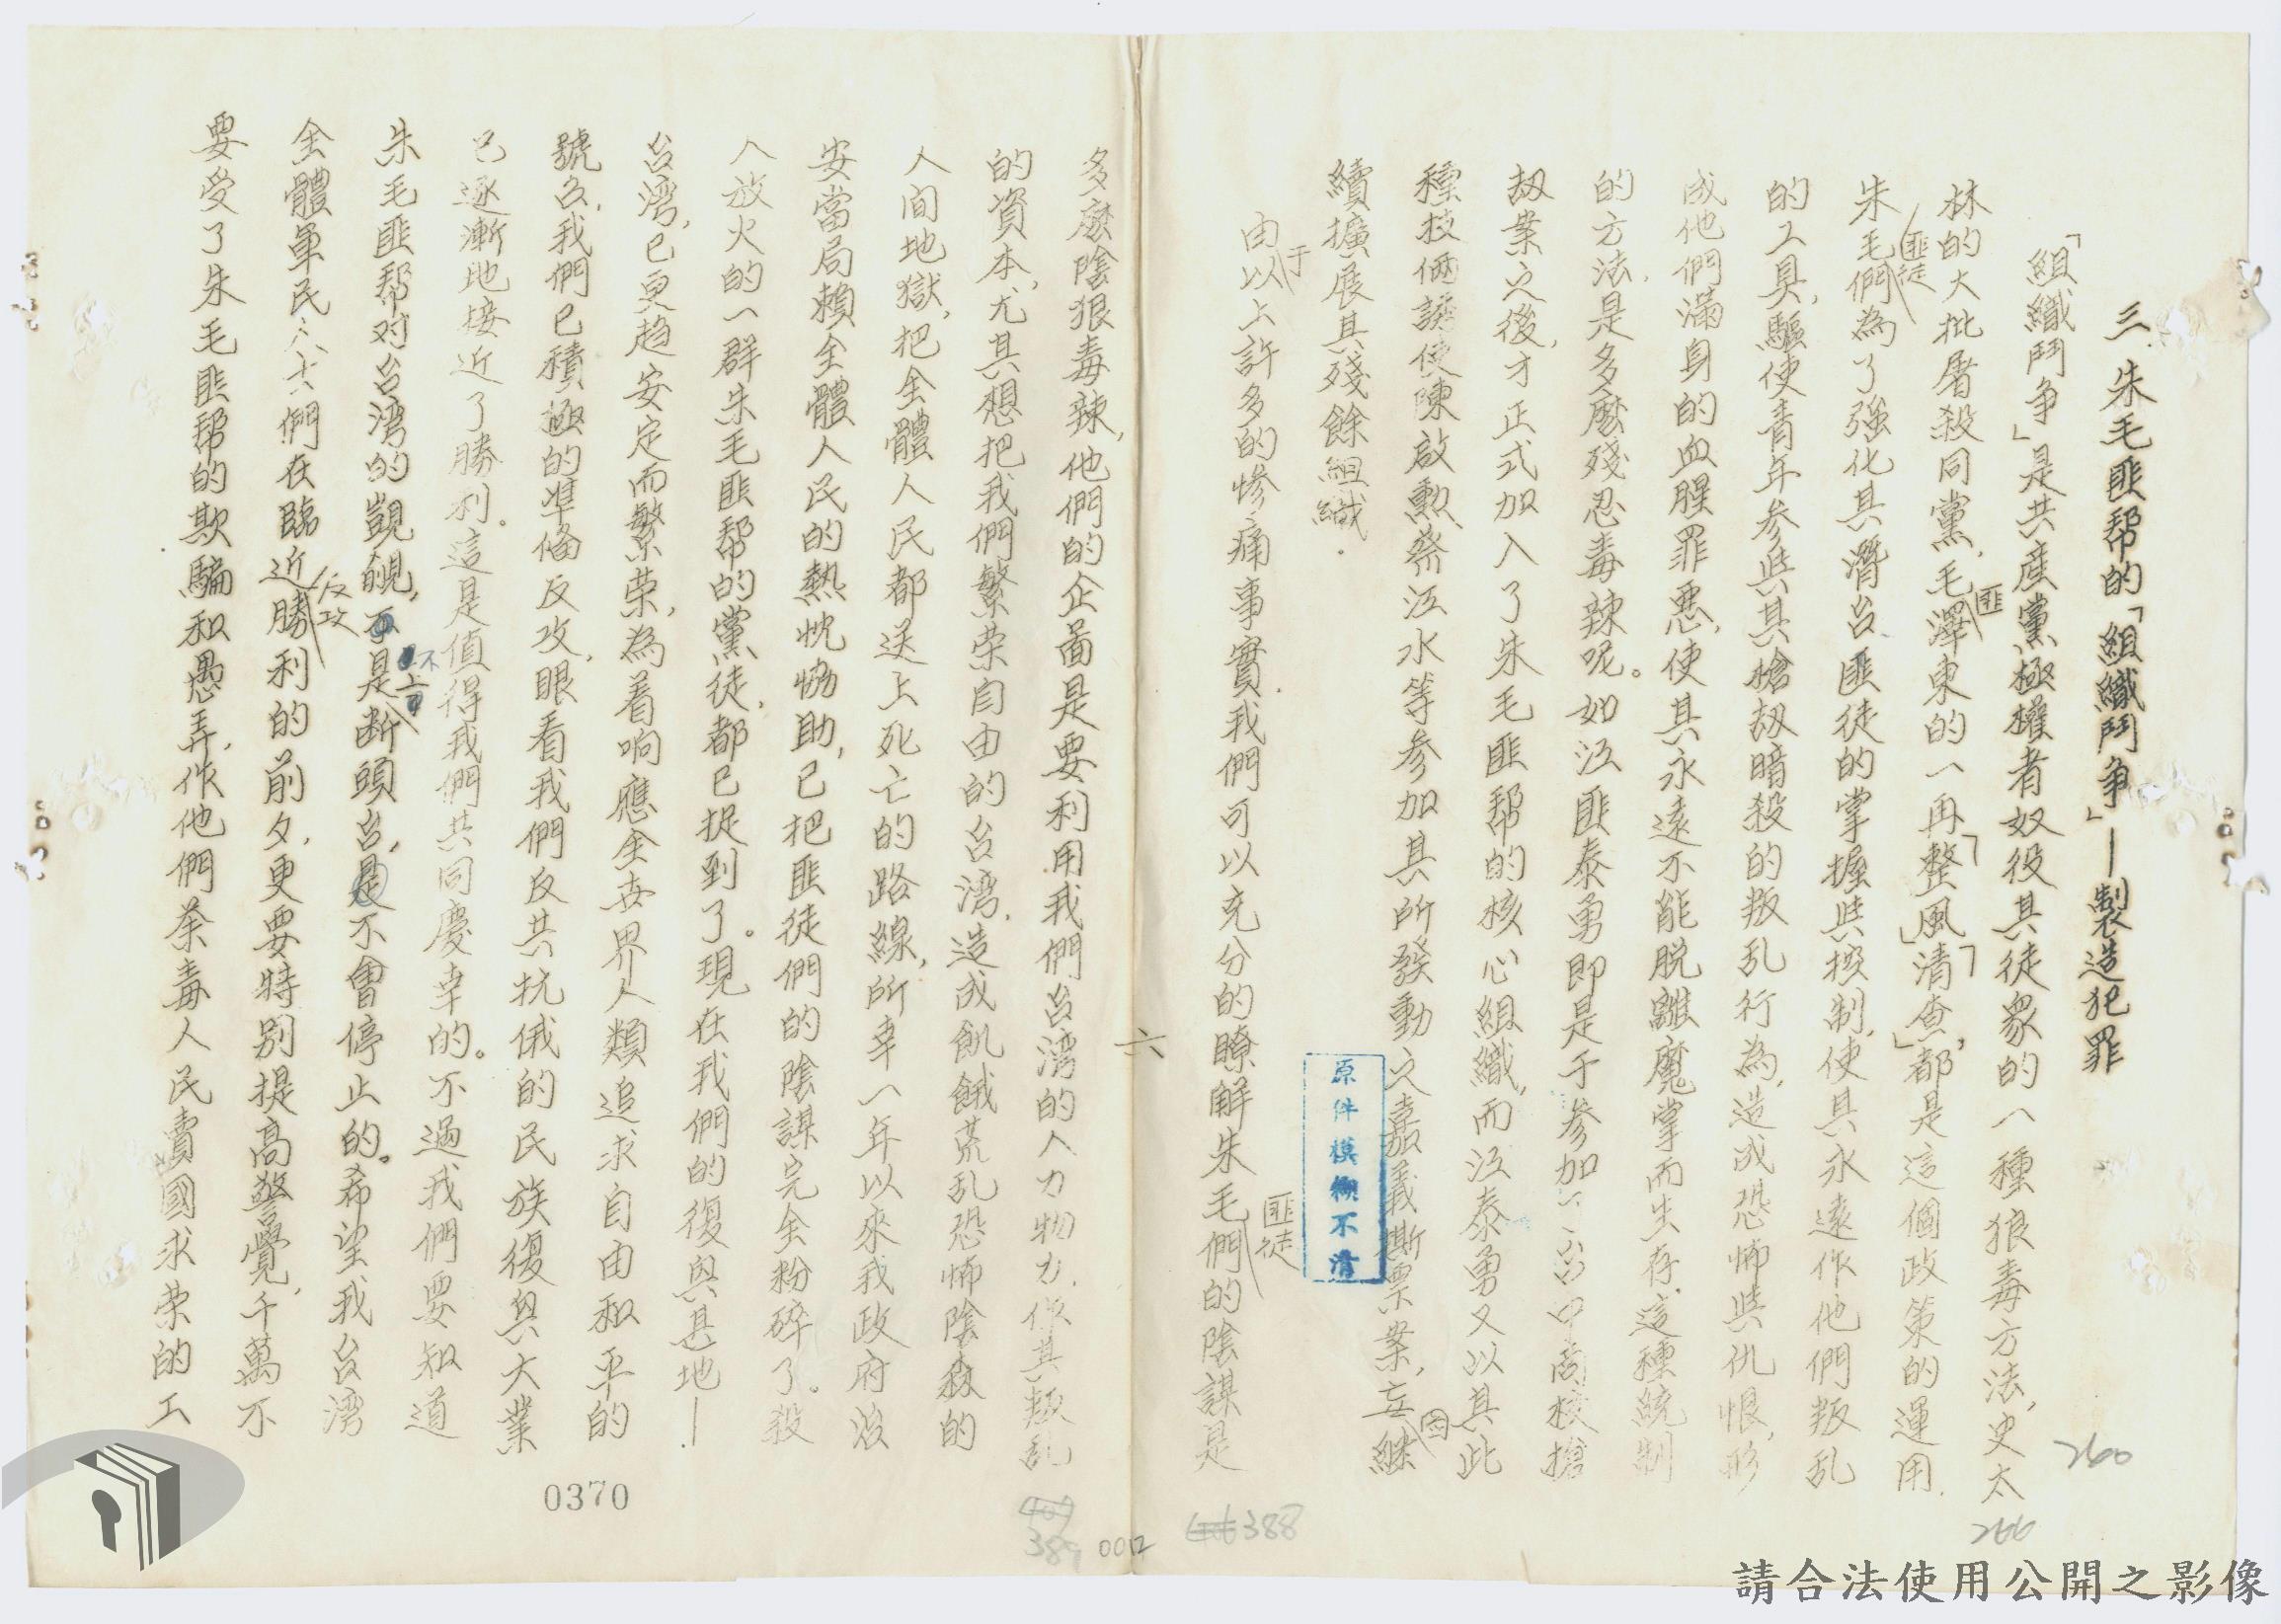 三、朱毛匪幫的「組織鬥爭」—製造犯罪
「組織鬥爭」是共産黨極權者奴役其徒衆的一種狠毒方法,史太
林的大批屠殺同黨,毛澤東的一再「整風」「清查」,都是這個政策的運用.
匪
朱毛們為了強化其潛台匪徒的掌握與控制,使其永遠作他們叛乱
匪徒
的工具,驅使青年参與其搶刼暗殺的叛乱行為,造成恐怖與仇恨,形
成他們滿身的血腥罪惡,使其永遠不能脱離魔掌而生存.這種統制
的方法,是多麼殘忍毒辣呢。如江匪泰勇即是于参加台中商校搶
刼業之後,才正式加入了朱毛匪幫的核心組織,而江泰勇又以其此
種技倆誘使陳啟勲蔡江水等参加其所發動之嘉義撕票業,妄継
圖
續擴展其殘餘組織.
由以上許多的慘痛事實.我們可以充分的瞭解朱毛們的陰謀是
于
匪徒
原件模糊不清
六
多麼陰狠毒辣,他們的企畵是要利用我們台湾的人力物力.作其叛乱
的資本,尤其想把我們繁荣自由的台湾,造成飢餓荒乱恐怖陰森的
人間地獄,把全體人民都送上死亡的路線,所幸一年以來我政府治
安當局賴全體人民的熱忱協助,已把匪徒們的陰謀完全粉碎了。殺
人放火的一群朱毛匪幫的黨徒,都已捉到了。現在我們的復興基地—
台湾,已更趋安定而繁荣,為着响應全世界人類追求自由和平的
號召,我們已積極的準偹反攻,眼看我們反共抗俄的民族復興大業
已逐漸地接近了勝利。這是值得我們共同慶幸的。不過我們要知道
朱毛匪幫对台湾的覬覦,不是断頭台,是不會停止的。希望我台湾
不上
全體軍民們在臨近勝利的前夕,更要特别提高警覺,千萬不
反攻
要受了朱毛匪幫的欺騙和愚弄,作他們荼毒人民賣國求荣的工
260
266
388
389
0012
0370
請合法使用公開之影像